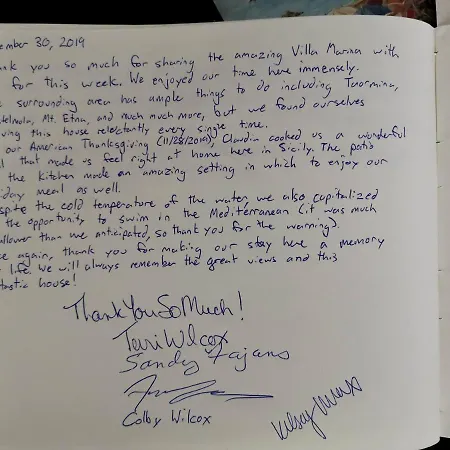 ember 30, 2019
ank you so much for sharing the amazing Villa Marina with
for this week. We enjoyed our time here immensely.
surrounding area has ample things to do including Taormina,
telmola, Mt. Etna, and much much more, but we found ourselves
ving this house reluctantly every single time.
our American Thanksgiving (11/28/2019), Claudia cooked us a wonderful
l that made us feel right at home here in Sicily. The patio
the kitchen made an amazing setting in which to enjoy our
iday meal as well.
spite the cold temperature of the water, we also capitalized
the opportunity to swim in the Mediterranean (it was much
allower than we anticipated, so thank you for the warning).
ce again, thank you for making our stay here a memory
life. We will always remember the great views and this
tastic house!
Thank You So Much!
Teri Wilcox
Sandy Fajans
Colby Wilcox